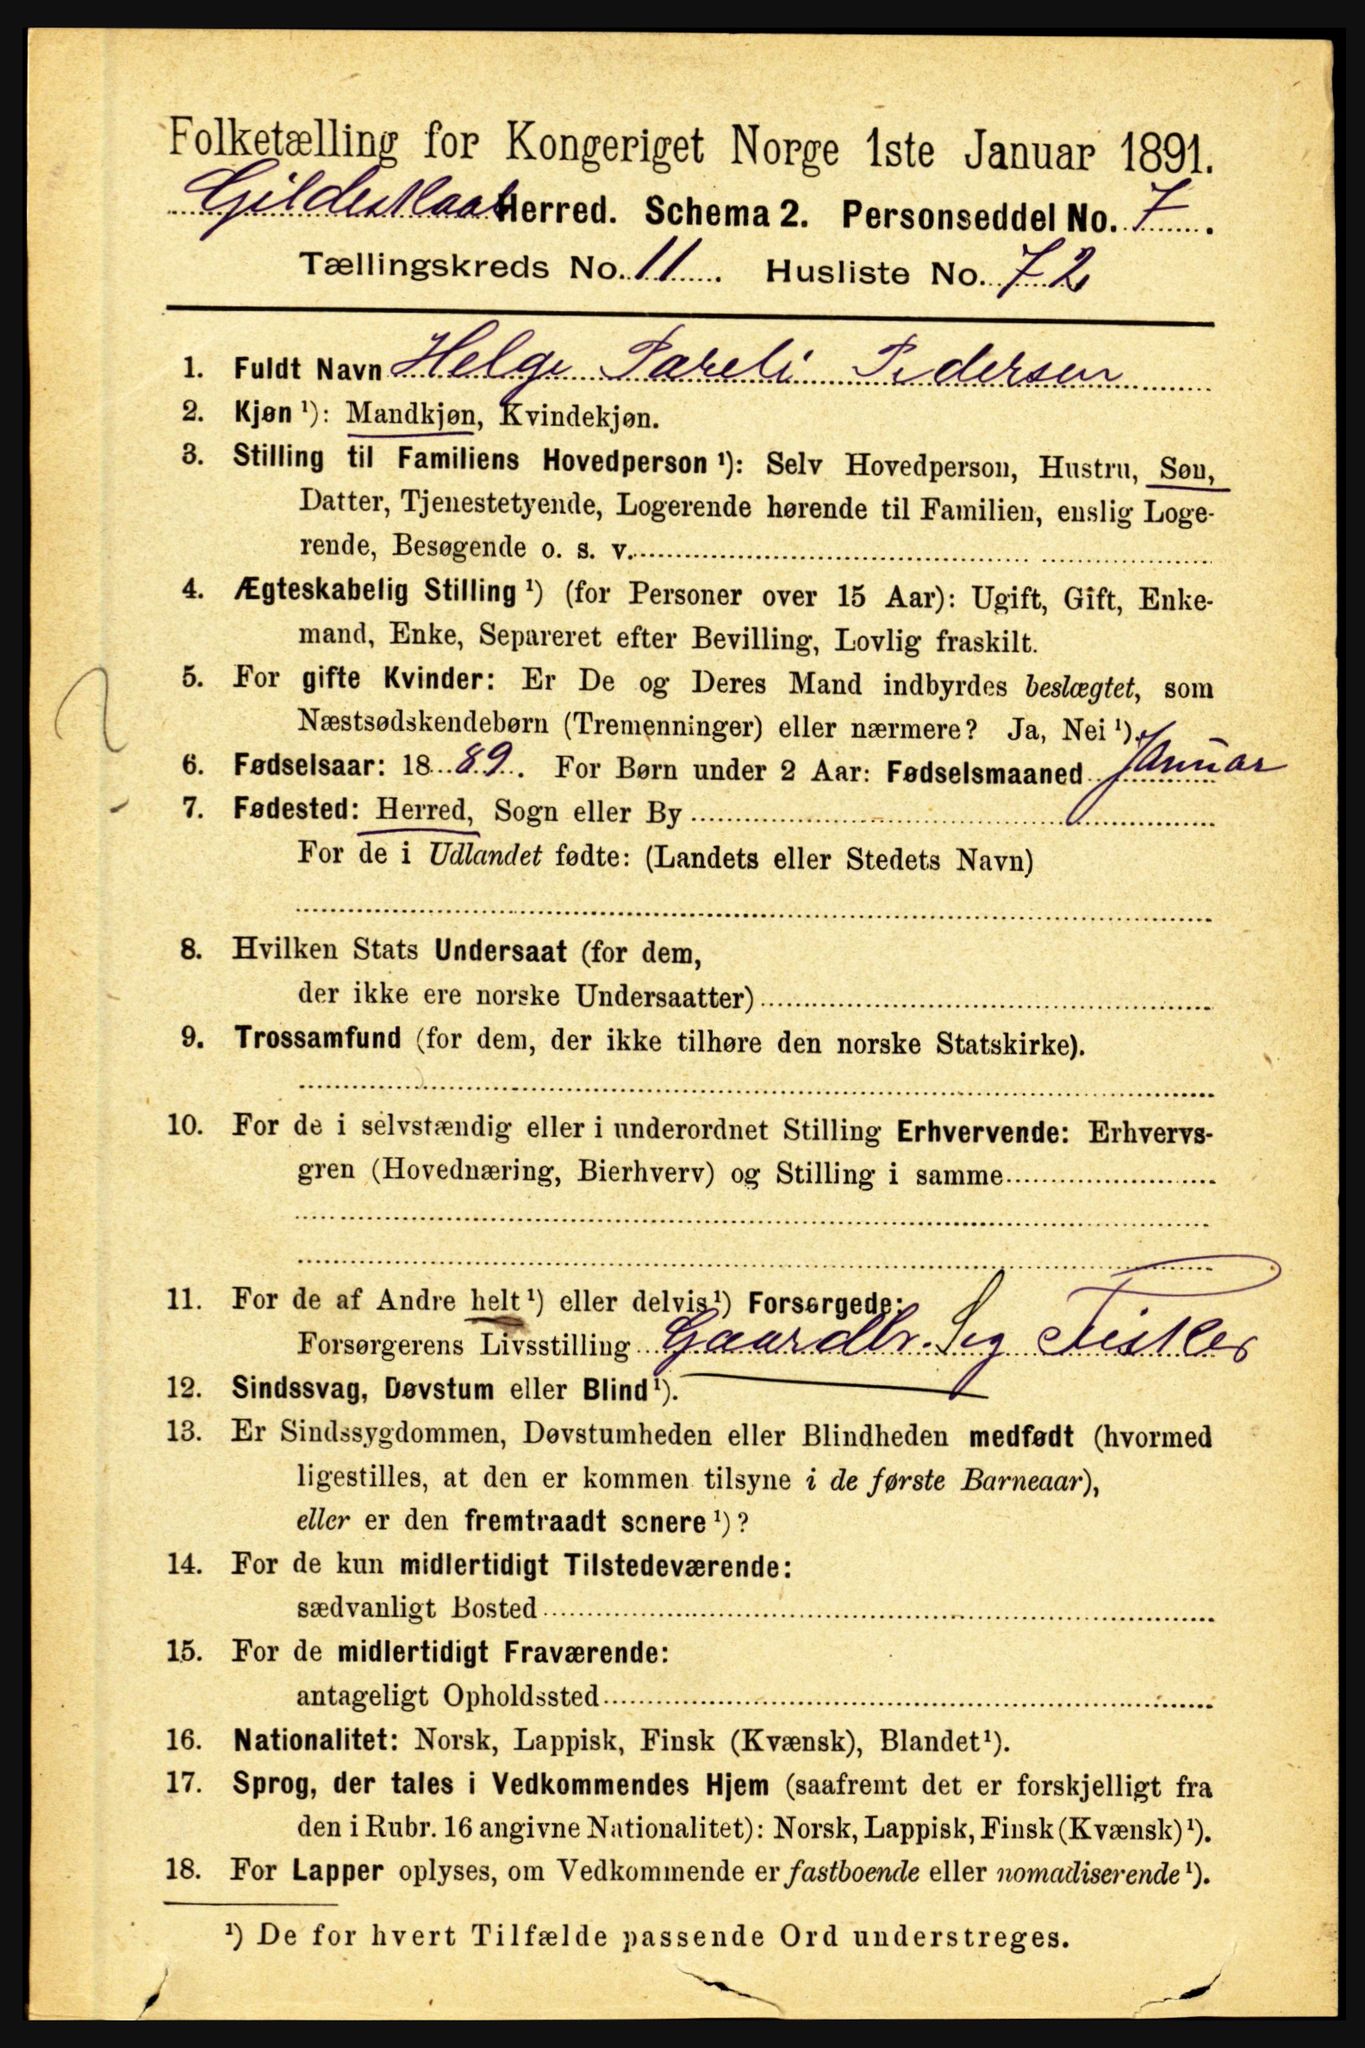 Folketælling for Kongeriget Norge 1ste Januar 1891.
Gildeskaal Herred. Schema 2. Personseddel No. 7.
Tællingskreds No. 11. Husliste No. 72
1. Fuldt Navn Helge Pareli Pedersen
2. Kjøn ¹): Mandkjøn, Kvindekjøn.
3. Stilling til Familiens Hovedperson ¹): Selv Hovedperson, Hustru, Søn,
Datter, Tjenestetyende, Logerende hørende til Familien, enslig Loge-
rende, Besøgende o. s. v.
4. Ægteskabelig Stilling ¹) (for Personer over 15 Aar): Ugift, Gift, Enke-
mand, Enke, Separeret efter Bevilling, Lovlig fraskilt.
5. For gifte Kvinder: Er De og Deres Mand indbyrdes beslægtet, som
Næstsødskendebørn (Tremenninger) eller nærmere? Ja, Nei ¹).
6. Fødselsaar: 1889. For Børn under 2 Aar: Fødselsmaaned Januar
7. Fødested: Herred, Sogn eller By
For de i Udlandet fødte: (Landets eller Stedets Navn)
8. Hvilken Stats Undersaat (for dem,
der ikke ere norske Undersaatter)
9. Trossamfund (for dem, der ikke tilhøre den norske Statskirke).
10. For de i selvstændig eller i underordnet Stilling Erhvervende: Erhvervs-
gren (Hovednæring, Bierhverv) og Stilling i samme
11. For de af Andre helt ¹) eller delvis ¹) Forsørgede:
Forsørgerens Livsstilling Gaardbr. Sig Fisker
12. Sindssvag, Døvstum eller Blind ¹).
13. Er Sindssygdommen, Døvstumheden eller Blindheden medfødt (hvormed
ligestilles, at den er kommen tilsyne i de første Barneaar),
eller er den fremtraadt senere ¹)?
14. For de kun midlertidigt Tilstedeværende:
sædvanligt Bosted
15. For de midlertidigt Fraværende:
antageligt Opholdssted
16. Nationalitet: Norsk, Lappisk, Finsk (Kvænsk), Blandet ¹).
17. Sprog, der tales i Vedkommendes Hjem (saafremt det er forskjelligt fra
den i Rubr. 16 angivne Nationalitet): Norsk, Lappisk, Finsk (Kvænsk) ¹).
18. For Lapper oplyses, om Vedkommende er fastboende eller nomadiserende ¹).
¹) De for hvert Tilfælde passende Ord understreges.